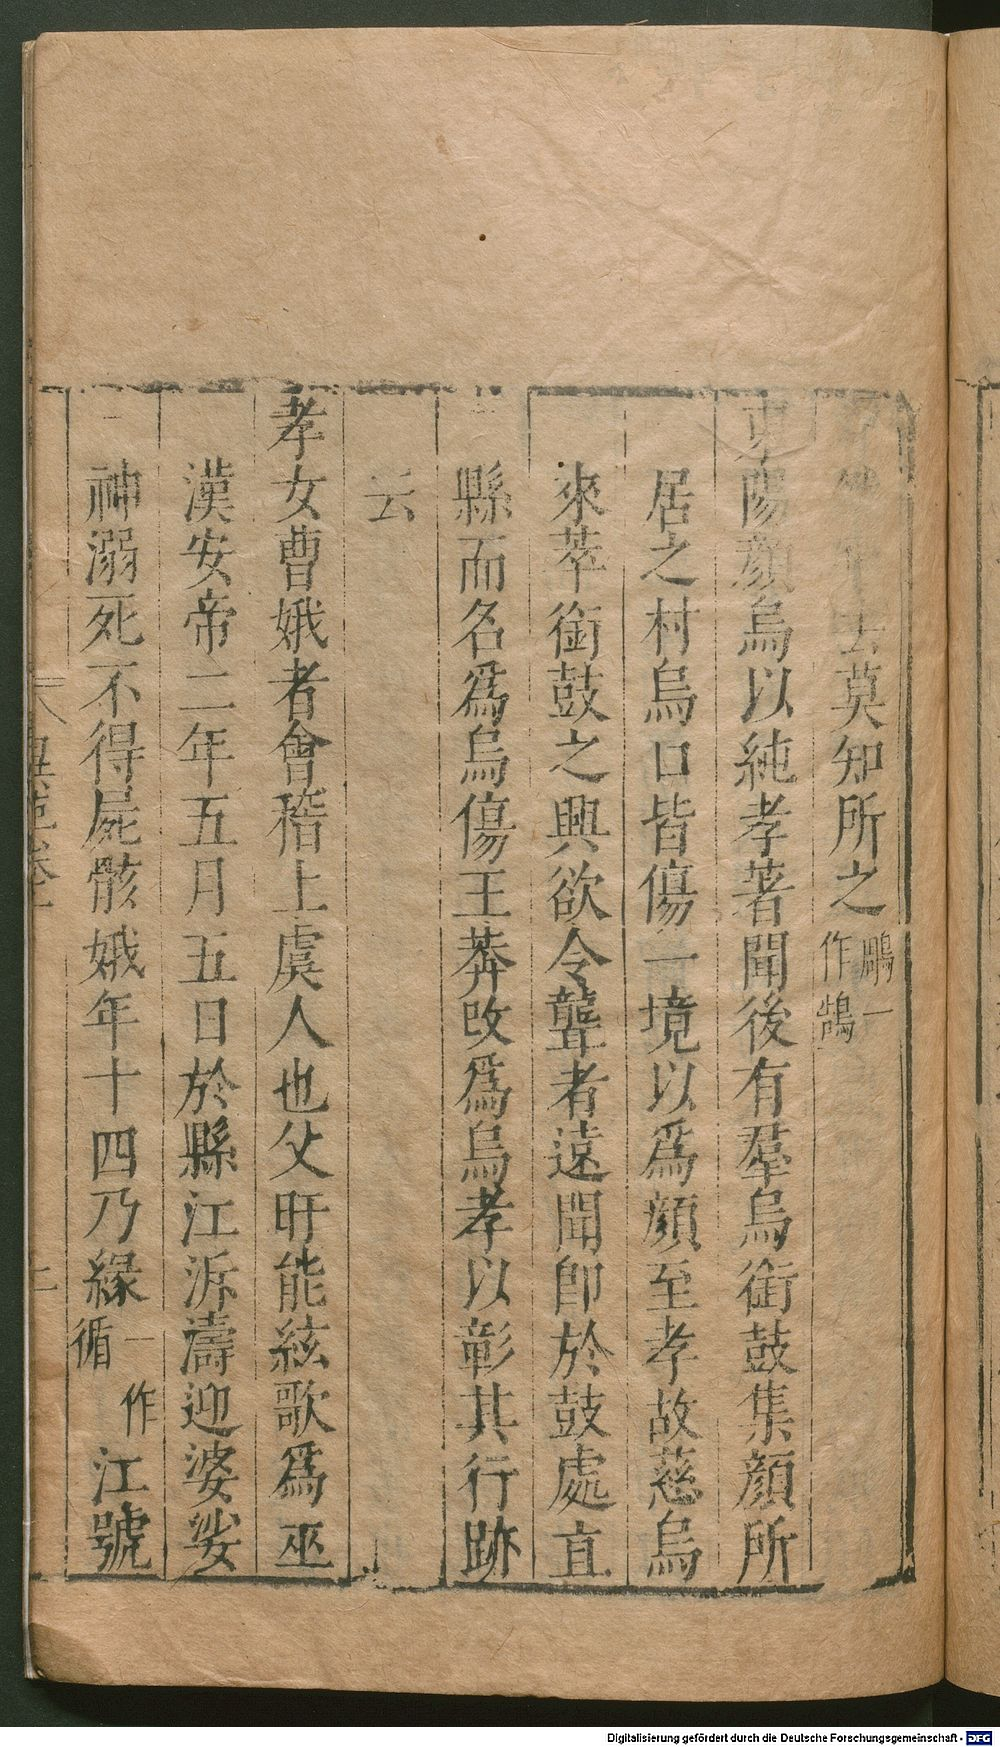 去莫知所之鵰一作鵠
東陽顔烏以純孝著聞後有羣烏銜鼓集顔所
居之村烏口皆傷一境以爲顔至孝故慈烏
來萃銜鼓之興欲令聾者遠聞即於鼓處直
縣而名爲烏傷王莽改爲烏孝以彰其行跡
云
孝女曹娥者會稽上虞人也父盱能絃歌爲巫
漢安帝二年五月五日於縣江泝濤迎婆娑
神溺死不得屍骸娥年十四乃緣一作循江號
異苑卷十
Digitalisierung gefördert durch die Deutsche Forschungsgemeinschaft - DFG